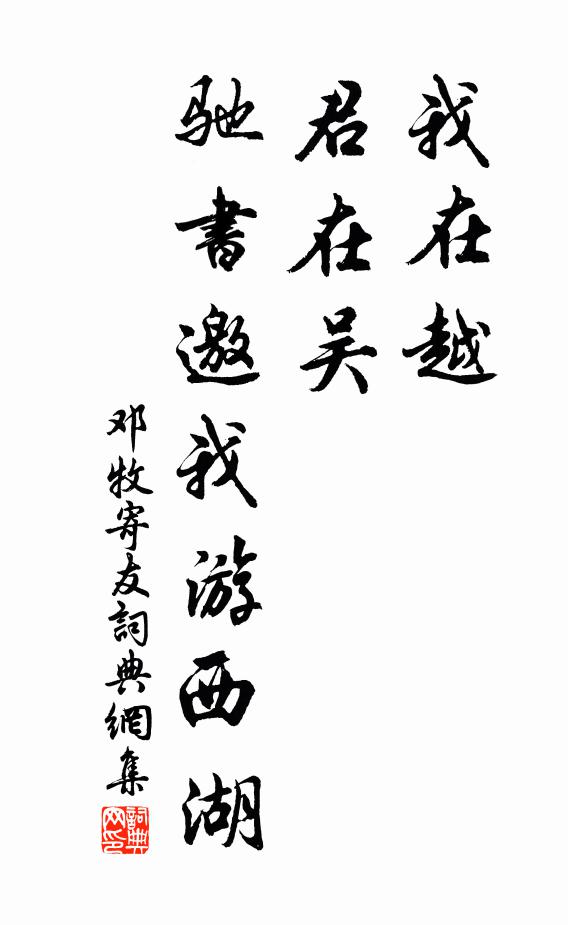 我在越
君在吴
驰书邀我游西湖
邓牧寄友詞典網集
詞典网印